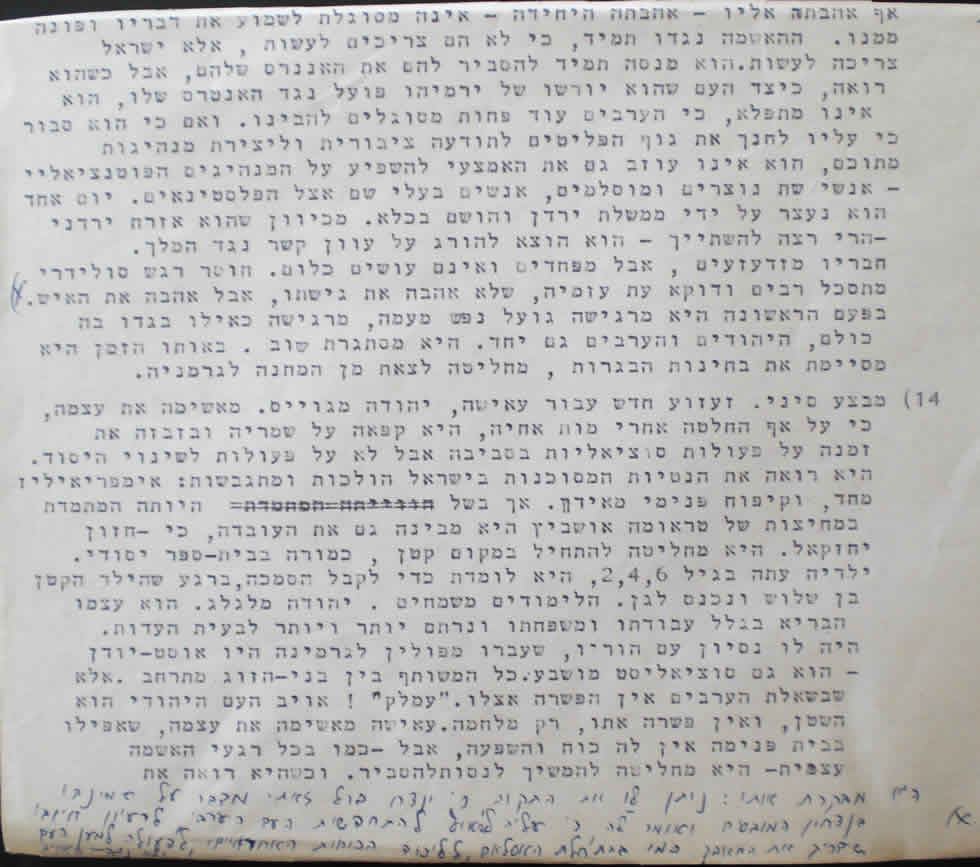 אף אהבתה אליו - אהבתה היחידה - אינה מסוגלת לשמוע את דבריו ופונה
ממנו. ההאשמה נגדו תמיד, כי לא הם צריכים לעשות , אלא ישראל
צריכה לעשות.הוא מנסה תמיד להסביר להם את האנגרס שלהם, אבל כשהוא
רואה, כיצד העם שהוא יורשו של ירמיהו פועל נגד האנטרס שלו, הוא
אינו מתפלא, כי הערבים עוד פחות מסוגלים להבינו. ואם כי הוא סבור
כי עליו לחנך את גוף הפליטים לתודעה ציבורית וליצירת מנהיגות
מתוכם, הוא אינו עוזב גם את האמצעי להשפיע על המנהיגים הפוטנציאליי
- אנשי שת נוצרים ומוסלמים, אנשים בעלי שם אצל הפלסטינאים. יום אחד
הוא נעצר על ידי ממשלת ירדן והושם בכלא. מכיוון שהוא אזרח ירדני
-הרי רצה להשתייך - הוא הוצא להורג על עוון קשר נגד המלך.
חבריו מזדעזעים , אבל מפחדים ואינם עושים כלום. חוסר רגש סולידרי
מתסכל רבים ודוקא עת עזמיה, שלא אהבה את גישתו, אבל אהבה את האיש.
בפעם הראשונה היא מרגישה גועל נפש מעמה, מרגישה כאילו בגדו בה
כולם, היהודים והערבים גם יחד. היא מסתגרת שוב . באותו הזמן היא
מסיימת את בחינות הבגרות , מחליטה לצאת מן המחנה לגרמניה.
14) מבצע סיני. זעזוע חדש עבור עאישה, יהודה מגוייס. מאשימה את עצמה,
כי על אף החלטה אחרי מות אחיה, היא קפאה על שמריה ובזבזה את
זמנה על פעולות סוציאליות בסביבה אבל לא על פעולות לשינוי היסוד.
היא רואה את הנטיות המסוכנות בישראל הולכות ומתגבשות: אימפריאליז
מחד, וקיפוח פנימי מאידך. אך בשל היותה המתמדת
במחיצות של טראומה אושביץ היא מבינה גם את העובדה, כי -חזון
יחזקאל. היא מחליטה להתחיל במקום קטן , כמורה בבית-ספר יסודי.
ילדיה עתה בגיל 2,4,6, היא לומדת כדי לקבל הסמכה,ברגע שהילד הקטן
בן שלוש ונכנס לגן. הלימודים משמחים . יהודה מלגלג. הוא עצמו
הבריא בגלל עבודתו ומשפחתו ונרתם יותר ויותר לבעית העדות.
היה לו נסיון עם הוריו, שעברו מפולין לגרמינה היו אוסט-יודן
- הוא גם סוציאליסט מושבע.כל המשותף בין בני-הזוג מתרחב .אלא
שבשאלת הערבים אין הפשרה אצלו."עמלק" ! אויב העם היהודי הוא
השטן, ואין פשרה אתו, רק מלחמה.עאישה מאשימה את עצמה, שאפילו
בבית פנימה אין לה כוח והשפעה, אבל -כמו בכל רגעי האשמה
עצמית- היא מחליטה להמשיך לנסותלהסביר. וכשהיא רואה את